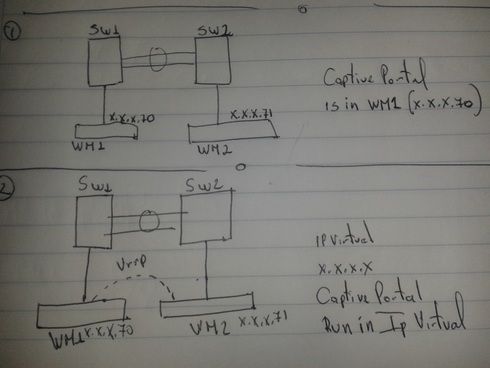 1
SW1 SW2
x.x.x.70 x.x.x.71
WM1 WM2
Captive Portal
is in WM1 (x.x.x.70)
2
SW1 SW2
Vrrp
WM1 x.x.x.70 WM2 x.x.x.71
IP Virtual
x.x.x.x
Captive Portal
Run in Ip Virtual